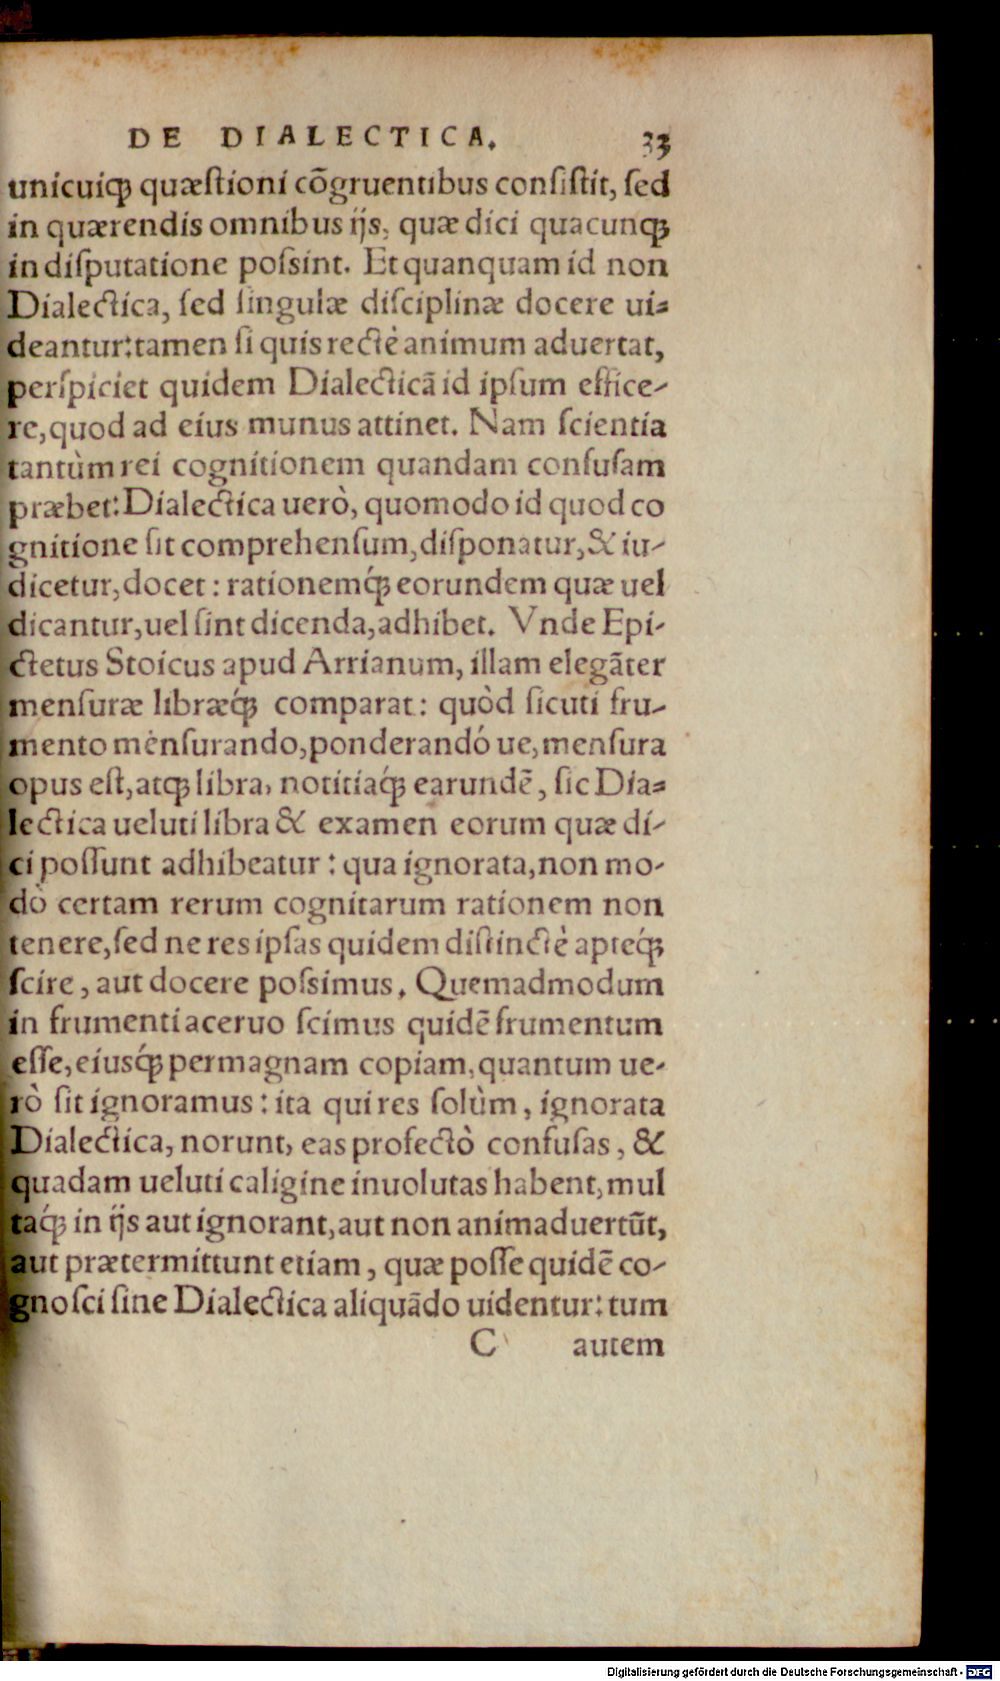 DE DIALECTICA. 33
unicuiq́; quæſtioni cõgruentibus conſiſtit, ſed
in quærendis omnibus ijs, quæ dici quacunq;
in diſputatione poſsint. Et quanquam id non
Dialectica, ſed ſingulæ diſciplinæ docere ui-
deantur: tamen ſi quis rectè animum aduertat,
perſpiciet quidem Dialecticã id ipſum effice-
re, quod ad eius munus attinet. Nam ſcientia
tantùm rei cognitionem quandam confuſam
præbet: Dialectica uerò, quomodo id quod co
gnitione ſit comprehenſum, diſponatur, & iu-
dicetur, docet: rationemq́; eorundem quæ uel
dicantur, uel ſint dicenda, adhibet. Vnde Epi-
ctetus Stoicus apud Arrianum, illam elegãter
menſuræ libræq́; comparat: quòd ſicuti fru-
mento mẽnſurando, ponderandó ue, menſura
opus eſt, atq; libra, notitiaq́; earundẽ, ſic Dia-
lectica ueluti libra & examen eorum quæ di-
ci poſſunt adhibeatur: qua ignorata, non mo-
dò certam rerum cognitarum rationem non
tenere, ſed ne res ipſas quidem diſtinctè apteq́;
ſcire, aut docere poſsimus. Quemadmodum
in frumenti aceruo ſcimus quidẽ frumentum
eſſe, eiusq́; permagnam copiam, quantum ue-
rò ſit ignoramus: ita qui res ſolùm, ignorata
Dialectica, norunt, eas profectò confuſas, &
quadam ueluti caligine inuolutas habent, mul
taq́; in ijs aut ignorant, aut non animaduertũt,
aut prætermittunt etiam, quæ poſſe quidẽ co-
gnoſci ſine Dialectica aliquãdo uidentur: tum
C autem
Digitalisierung gefördert durch die Deutsche Forschungsgemeinschaft - DFG